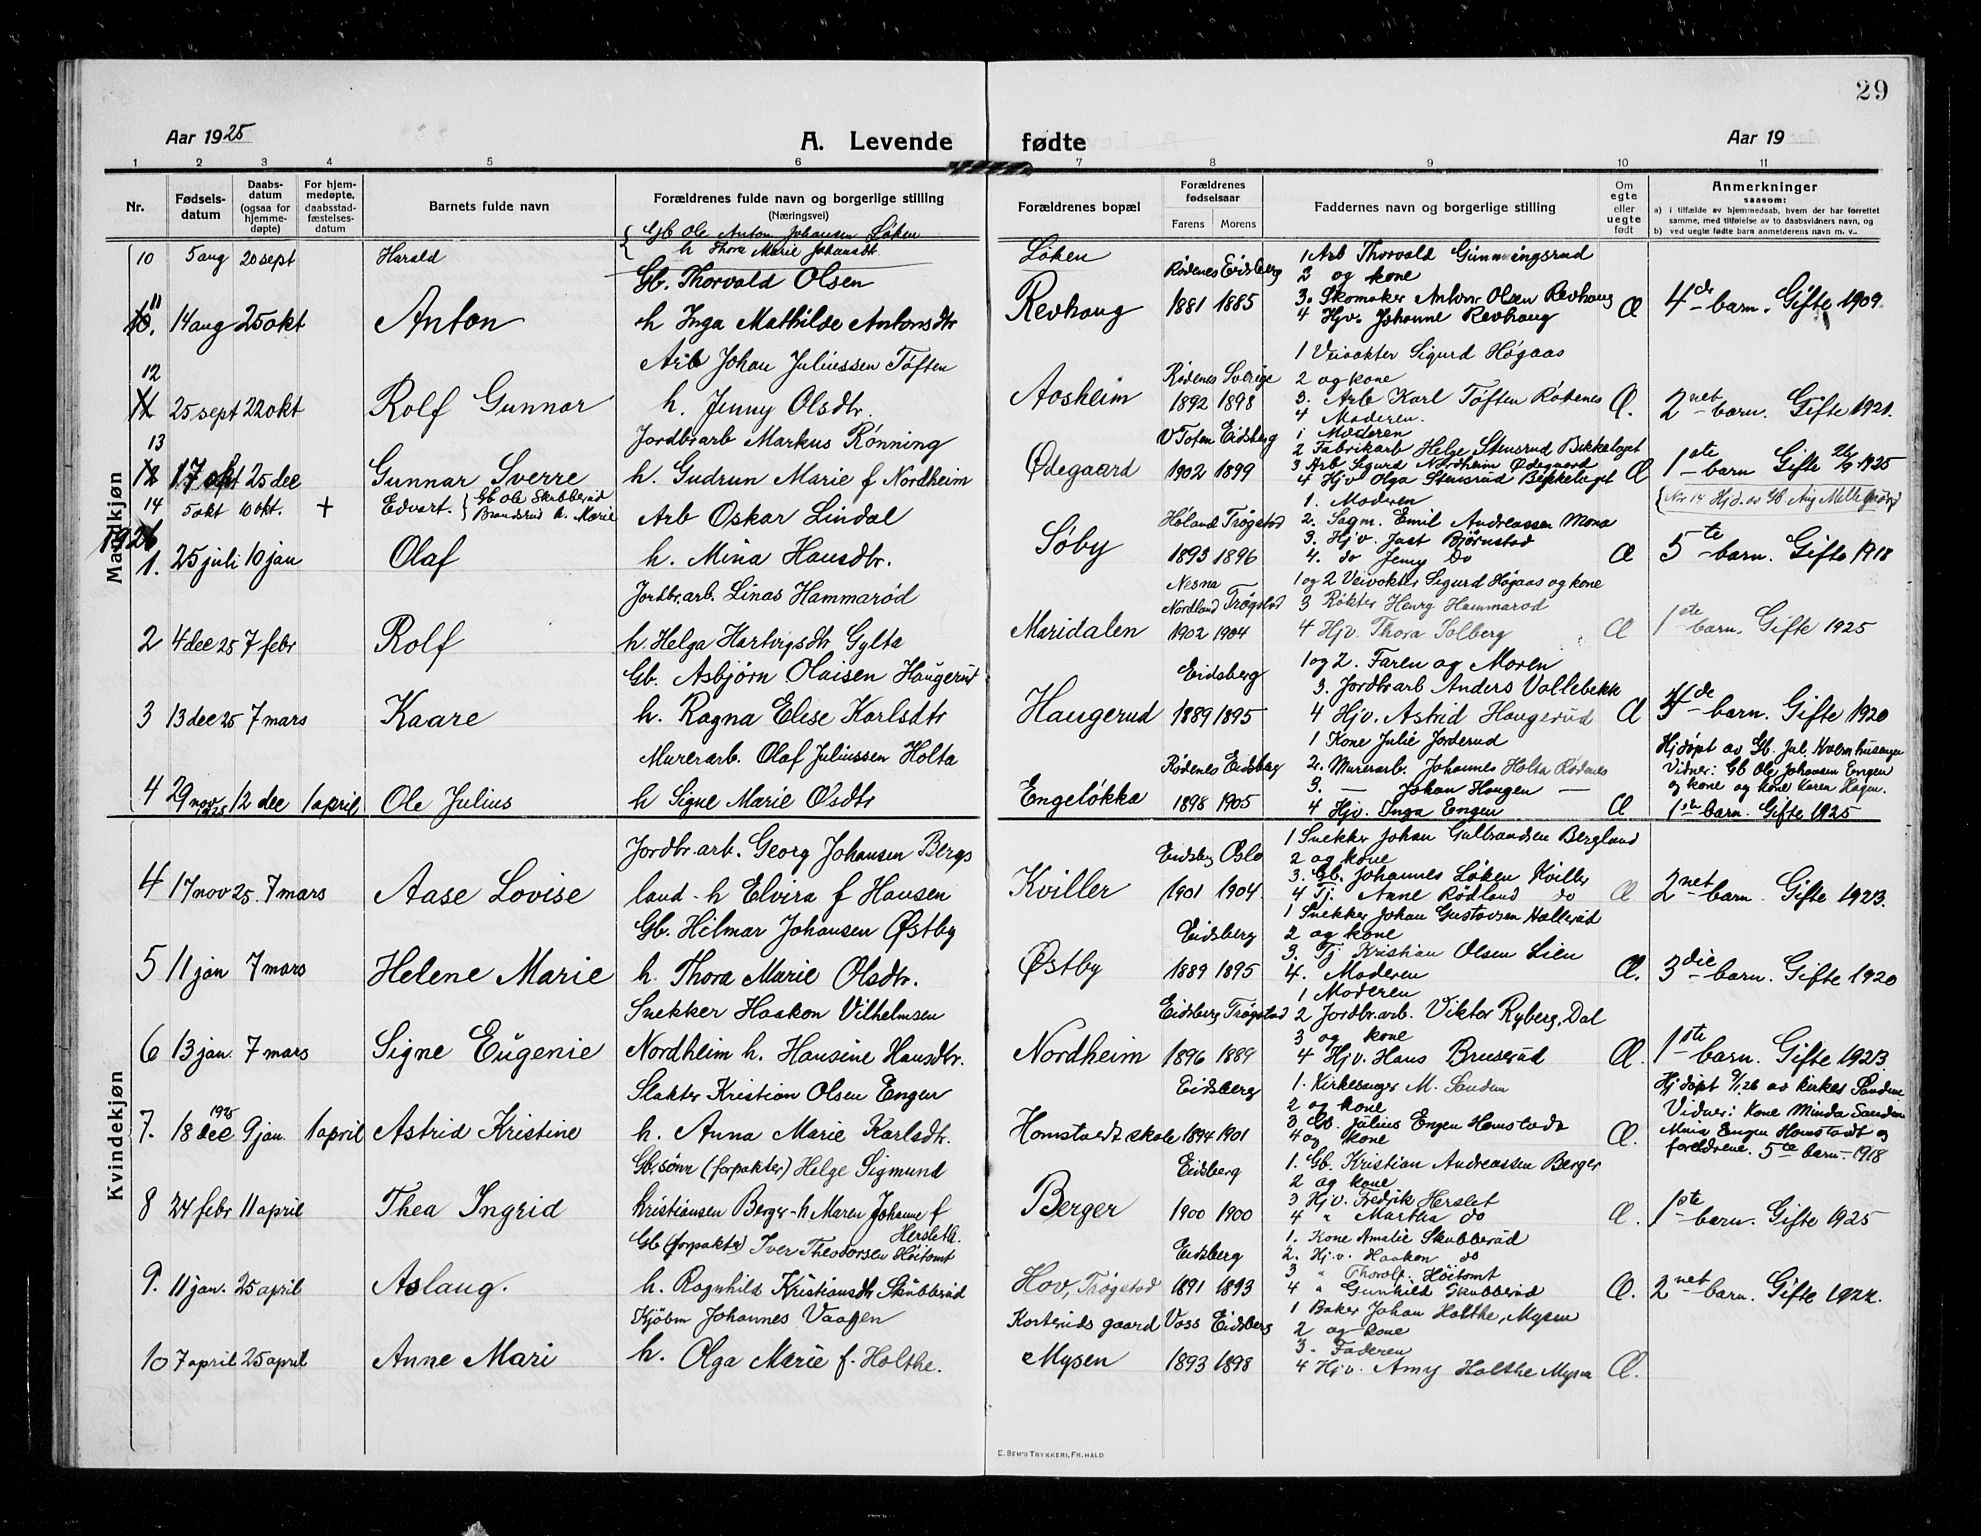 29
Aar 1925
A. Levende fødte
Aar 19
1 2 3 4 5 6 7 8 9 10 11
Nr.
Fødselsdatum
Daabsdatum (ogsaa for hjemmedøpte)
For hjemmedøpte, daabsstadfæstelsesdatum
Barnets fulde navn
Forældrenes fulde navn og borgerlige stilling
(Næringsvei)
Forældrenes bopæl
Forældrenes fødselsaar
Farens Morens
Faddernes navn og borgerlige stilling
Om egte eller uegte født
Anmerkninger
saasom:
a) i tilfælde av hjemmedaab, hvem der har forrettet samme, med tilføielse av to daabsvidners navn, m. v.,
b) ved uegte fødte barn anmelderens navn m. v..
Mandkjøn
10 5 aug 20 sept Harald
Gb Ole Anton Johansen Løken
h Thora Marie Johansdtr.
Løken
11 10. 14 aug 25 okt Anton
Gb. Thorvald Olsen
h Inga Mathilde Antonsdtr
Revhaug
Rødenes Eidsberg
1881 1885
1 Arb Thorvald Gunningsrud
2 og kone
3. Skomaker Anton Olsen Revhaug
4 Hjv. Johanne Revhaug
Æ
4de barn. Gifte 1909.
12 11 25 sept 22 okt Rolf Gunnar
Arb Johan Juliussen Tøften
h. Jenny Olsdtr.
Aasheim
Rødenes Sverige
1892 1898
1 Veivokter Sigurd Høgaas
2 og kone
3. Arb Karl Tøften Rødenes
4 Moderen.
Æ.
2net barn. Gifte 1921.
13 12 17 okt 25 dec Gunnar Sverre
Jordbr.arb Markus Rønning
h. Gudrun Marie f Nordheim
Ødegaard
V Toten Eidsberg
1902 1899
1 Moderen
2 Fabrikarb Helge Stensrud Bekkelaget
3 Arb Sigurd Nordheim Ødegaard
4 Hjv Olga Stensrud Bekkelaget
Æ
1ste barn Gifte 1925
14 5 okt 10 okt. + Edvart. Gb Ole Skubberud
Brandsrud h. Marie
Nr 14 Hjd. av Gb Aug
1926
1. 25 juli 10 jan Olaf
Arb Oskar Lindal
h. Mina Hansdtr.
Søby
Høland Trøgstad
1893 1896
1. Moderen
2. Sagm. Emil Andreassen Mona
3. Hjv. Just Bjørnstad
4. do Jenny Do
Æ
5te barn. Gifte 1918
2 4 dec 25 7 febr Rolf
Jordbr.arb. Linas Hammarød
h. Helga Hartvigsdtr Gylta
Maridalen
Nesna
Nordland Trøgstad
1902 1904
1 og 2 Veivokter Sigurd Høgaas og kone
3 Røkter Henry Hammarød
4 Hjv. Thora Solberg
Æ
1ste barn. Gifte 1925
3 13 dec 25 7 mars Kaare
Gb. Asbjørn Olaisen Haugerud
h. Ragna Elise Karlsdtr
Haugerud
Eidsberg
1889 1895
1 og 2. Faren og Moren
3. Jordbr arb Anders Vallebekk
4 Hjv. Astrid Haugerud
Æ
de barn. Gifte 1920
4 29 nov 1925 12 dec 1 april Ole Julius
Murerarb. Olaf Juliussen Holta
h Signe Marie Olsdtr
Engeløkka
Rødenes Eidsberg
1898 1905
1 Kone Julie Jorderud
2. Murerarb. Johannes Holta Rødenes
3. — Johan Haugen —
4 Hjv. Inga Engen
Æ
Hjdøpt av Gb. Jul. Kvernhusengen
Vidner: Gb Ole Johansen Engen
og kone og kone Karen Hagen.
1ste barn. Gifte 1925
Kvindekjøn
4 17 nov 25. 7 mars Aase Lovise
Jordbr.arb. Georg Johansen Bergs
land - h Elvira f Hansen
Kviller
Eidsbg Oslo
1901 1904
1 Snekker Johan Gulbrandsen Bergland
2 og kone
3. Gb. Johannes Løken Kviller
4 Tj. Anne Rødland do
Æ
2net barn. Gifte 1923.
5 11 jan 7 mars Helene Marie
Gb. Hilmar Johansen Østby
h. Thora Marie Olsdtr.
Østby
Eidsberg
1889 1895
1 Snekker Johan Gustavsen Hallerud
2 og kone
3. Tj Kristian Olsen Lien
4. Moderen
Æ.
3die barn. Gifte 1920
6 13 jan. 7 mars Signe Eugenie
Snekker Haakon Vilhelmsen
Nordheim h. Hansine Hansdtr.
Nordheim
Eidsberg Trøgstad
1896 1889
1 Moderen
2 Jordbr.arb. Viktor Ryberg, Dal
3 og kone
4 Hjv. Hans Bruserud
Æ.
1ste barn. Gifte 1923.
7. 18 dec 1925 9 jan. 1 april Astrid Kristine
Slakter Kristian Olsen Engen
h. Anna Marie Karlsdtr.
Homstaedt skole
Eidsberg
1894 1901
1. Kirkesanger M. Sanden
2 og kone
3 Gb. Julius Engen Homstadt
4 og kone
Æ.
Hjdøpt 9/1 26 av kirkes Sanden
Vidner: Kone Minda Sanden
Maria Engen Homstadt og
foreldrene. 5te barn - 1918
8 24 febr 11 april Thea Ingrid
Gb.sønn (forpakter) Helge Sigmund
Kristiansen Berger - h Maren Johanne f
Hersleth.
Berger
Eidsberg
1900 1900
1. Gb. Kristian Andreassen Berger
2 og kone
3 Hjv. Fredrik Herslet
4 " Martha do
Æ.
1ste barn. Gifte 1925
9. 11 jan. 25 april Aslaug.
Gb (forpakter) Iver Theodorsen Høitomt
h. Ragnhild Kristiansdtr Skubberud
Hov, Trøgstad
Eidsberg
1891 1893
1. Kone Amalie Skubberud
2. Hj.v. Haakon do
3 " Thorolf Høitomt
4 " Gunhild Skubberud
Æ.
2net barn. Gifte 1922.
10 7 april 25 april Anne Mari
Kjøbm Johannes Vaagen
h. Olga Marie f. Holthe.
Korterids gaard
Mysen
Voss Eidsberg
1893 1898
1 Baker Johan Holthe, Mysen
2 og kone
3. Faderen
4 Hjv. Amy Holthe Mysen
Æ.
E. SEM'S TRYKKERI, FR.HALD